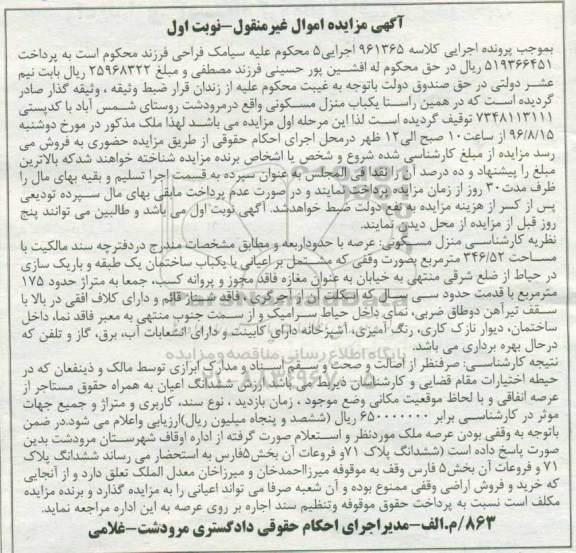 آگهی مزایده اموال غیرمنقول-نوبت اول
بموجب پرونده اجرایی کلاسه ۹۶۱۳۶۵ اجرایی۵ محکوم علیه سیامک فراحی فرزند محکوم است به پرداخت
۵۱۹۳۶۶۴۵۱ ریال در حق محکوم له افشین پور حسینی فرزند مصطفی و مبلغ ۲۵۹۶۸۳۲۲ ریال بابت نیم
عشر دولتی در حق صندوق دولت باتوجه به غیبت محکوم علیه از زندان قرار ضبط وثیقه ، وثیقه گذار صادر
گردیده است که در همین راستا یکباب منزل مسکونی واقع درمرودشت روستای شمس آباد با کدپستی
۷۳۴۸۱۱۳۱۱۱ توقیف گردیده است لذا این مرحله اول مزایده می باشد لهذا ملک مذکور در مورخ دوشنبه
۹۶/۸/۱۵ از ساعت۱۰ صبح الی۱۲ ظهر درمحل اجرای احکام حقوقی از طریق مزایده حضوری به فروش می
رسد مزایده از مبلغ کارشناسی شده شروع و شخص یا اشخاص برنده مزایده شناخته خواهند شدکه بالاترین
مبلغ را پیشنهاد و ده درصد آن را نقدا فی المجلس به عنوان سپرده به قسمت اجرا تسلیم و بقیه بهای مال را
ظرف مدت۳۰ روز از زمان مزایده پرداخت نمایند و در صورت عدم پرداخت مابقی بهای مال سپرده تودیعی
پس از کسر از هزینه مزایده به نفع دولت ضبط خواهدشد. آگهی نوبت اول می باشد و طالبین می توانند پنج
روز قبل از مزایده از محل دیدن نمایند.
نظریه کارشناسی منزل مسکونی: عرصه با حدوداربعه و مطابق مشخصات مندرج دردفترچه سند مالکیت با
مساحت ۳۴۶/۵۲ مترمربع بصورت وقفی که مشتمل بر اعیانی با یکباب ساختمان یک طبقه و باریک سازی
در حیاط از ضلع شرقی منتهی به خیابان به عنوان مغازه فاقد مجوز و پروانه کسب، جمعا به متراژ حدود ۱۷۵
مترمربع با قدمت حدود سی سال که اسکلت آن از آجرکری ، فاقد شناژ قائم و دارای کلاف افقی در بالا با
سقف تیرآهن دوطاق ضربی، نمای داخل حیاط سرامیک و از سمت جنوب منتهی به معبر فاقد نما، داخل
ساختمان، دیوار نازک کاری، رنگ آمیزی، آشپزخانه دارای کابینت و دارای انشعابات آب، برق، گاز و تلفن که
درحال بهره برداری می باشد.
نتیجه کارشناسی: صرفنظر از اصالت و صحت و سقم اسناد و مدارک ابرازی توسط مالک و ذینفعان که در
حیطه اختیارات مقام قضایی و کارشناسان ذیربط می باشد ارزش ششدانگ اعیان به همراه حقوق مستاجر از
عرصه انفاقی و با لحاظ موقعیت مکانی وضع موجود ، زمان بازدید ، نوع سند، کاربری و متراژ و جمیع جهات
موثر در کارشناسی برابر ۶۵۰۰۰۰۰۰۰ ریال (ششصد و پنجاه میلیون ریال)ارزیابی واعلام می شود.در ضمن
باتوجه به وقفی بودن عرصه ملک موردنظر و استعلام صورت گرفته از اداره اوقاف شهرستان مرودشت بدین
صورت پاسخ داده است (ششدانگ پلاک ۷۱و فروعات آن بخش۵فارس به استحضار می رساند ششدانگ پلاک
۷۱ و فروعات آن بخش۵ فارس وقف به موقوفه میرزااحمدخان و میرزاخان معدل الملک تعلق دارد و از آنجایی
که خرید و فروش اراضی وقفی ممنوع بوده و آن شعبه صرفا می تواند اعیانی را به مزایده گذارد و برنده مزایده
مکلف است نسبت به پرداخت حقوق موقوفه وتنظیم سند اجاره بر روی عرصه به این اداره مراجعه نماید.
۸۶۳/م.الف-مدیراجرای احکام حقوقی دادگستری مرودشت-غلامی